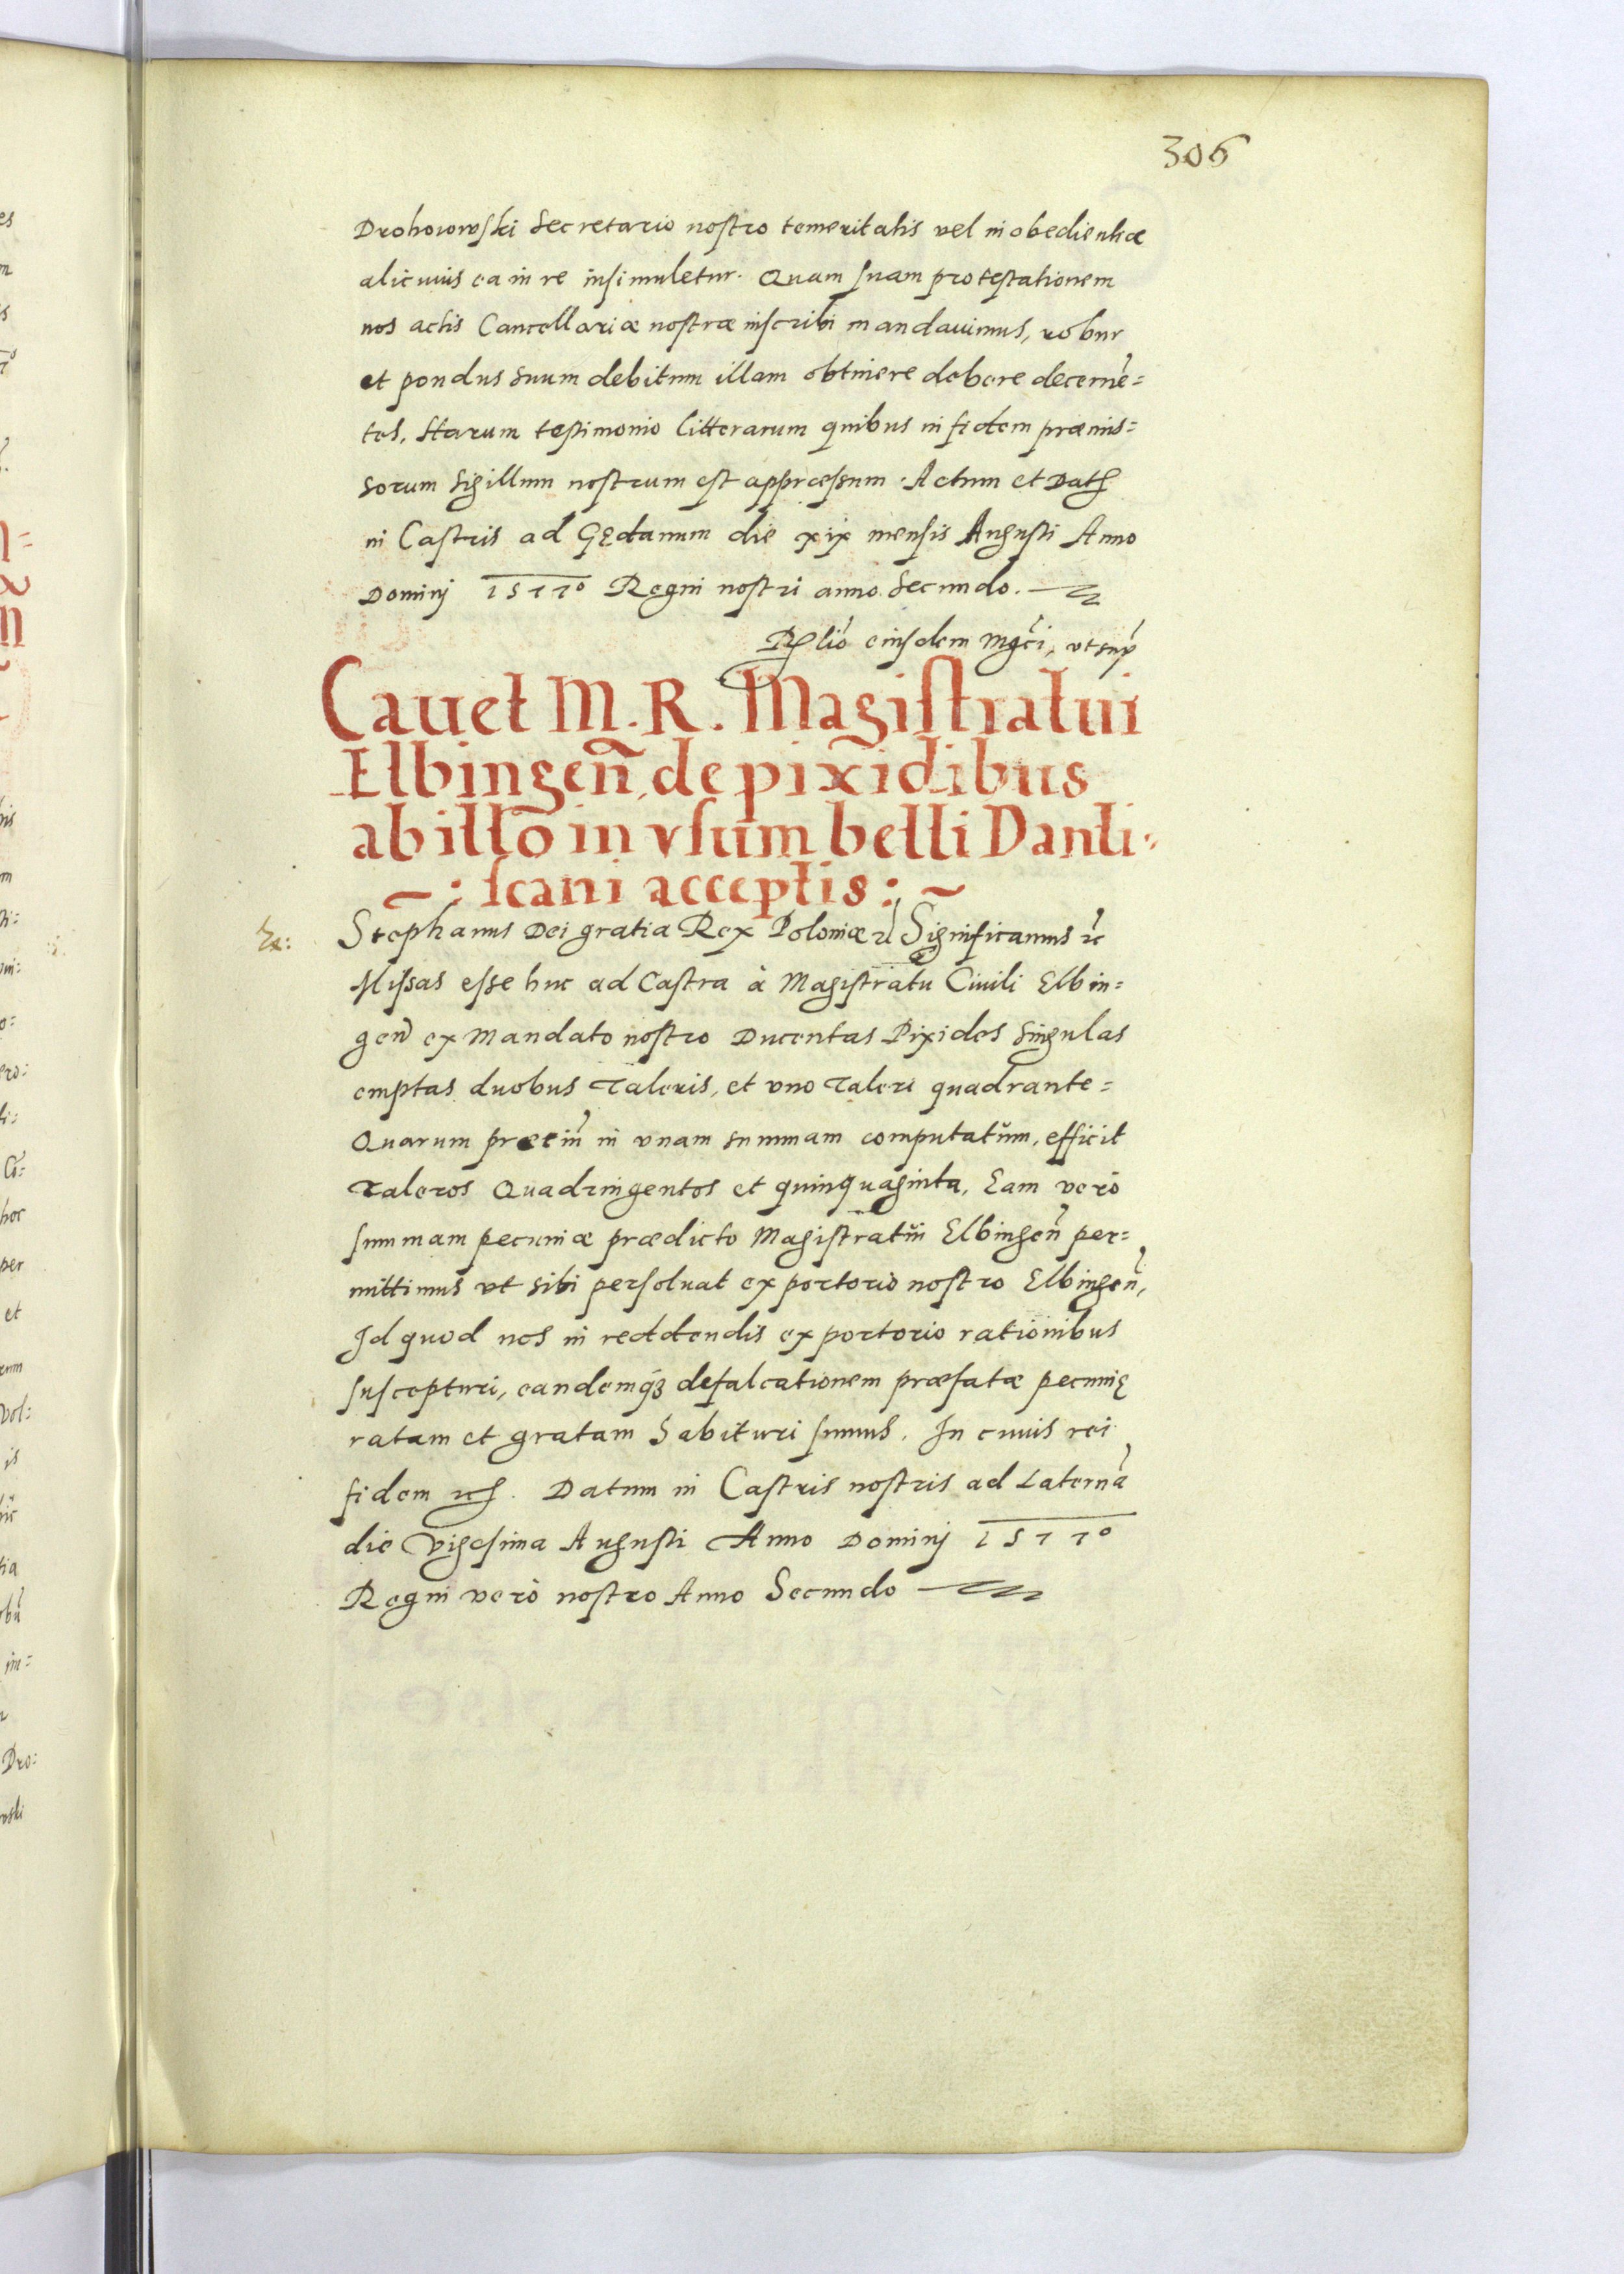 306
Drohoiowski Secretario nostro temeritatis vel inobedientiæ
alicuius ea in re insimuletur. Quam suam protestationem
nos actis Cancellariæ nostræ inscribi mandauimus, robur
et pondus suum debitum illam obtinere debere decernẽ=
tes, Harum testimonio litterarum quibus in fidem præmis=
sorum Sigillum nostrum est appressum. Actum et Dat
in Castris ad Gędanum die xix mensis Augusti Anno
Dominj 1577º Regni nostri anno Secundo.
Rlĩo eiusdem Mgci, vt sup
Cauet M. R. Magistratui
Elbingeñ, de pixidibus
ab illo in vsum belli Danti-
scani acceptis:
Stephanus Dei gratia Rex Poloniæ ꝛc Significamus ꝛc
Missas esse huc ad Castra à Magistratu Ciuili Elbin=
geñ ex Mandato nostro Ducentas Pixides Singulas
emptas duobus Taleris, et vno Taleri quadrante=
Quarum preciũ in vnam summam computatũm, efficit
Taleros Quadringentos et quinquaginta, Eam verò
summam pecuniæ prædicto Magistratŭi Elbingeñ per=
mittimus vt sibi persoluat ex portorio nostro Elbingeñ,
Id quod nos in reddendis ex portorio rationibus
suscepturi, eandemq3 defalcationem præfatæ pecunię
ratam et gratam habituri sumus. In cuius rei
fidem ꝛc. Datum in Castris nostris ad Laternã
die Vigesima Augusti Anno Dominj 1577º
Regni verò nostro Anno Secundo